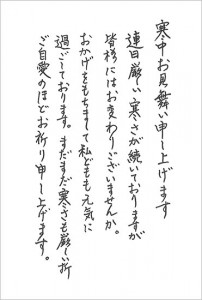 寒中お見舞い申し上げます
連日厳しい寒さが続いておりますが
皆様にはお変わりございませんか。
おかげをもちまして私どもも元気に
過ごしております。まだまだ寒さも厳しい折
ご自愛のほどお祈り申し上げます。